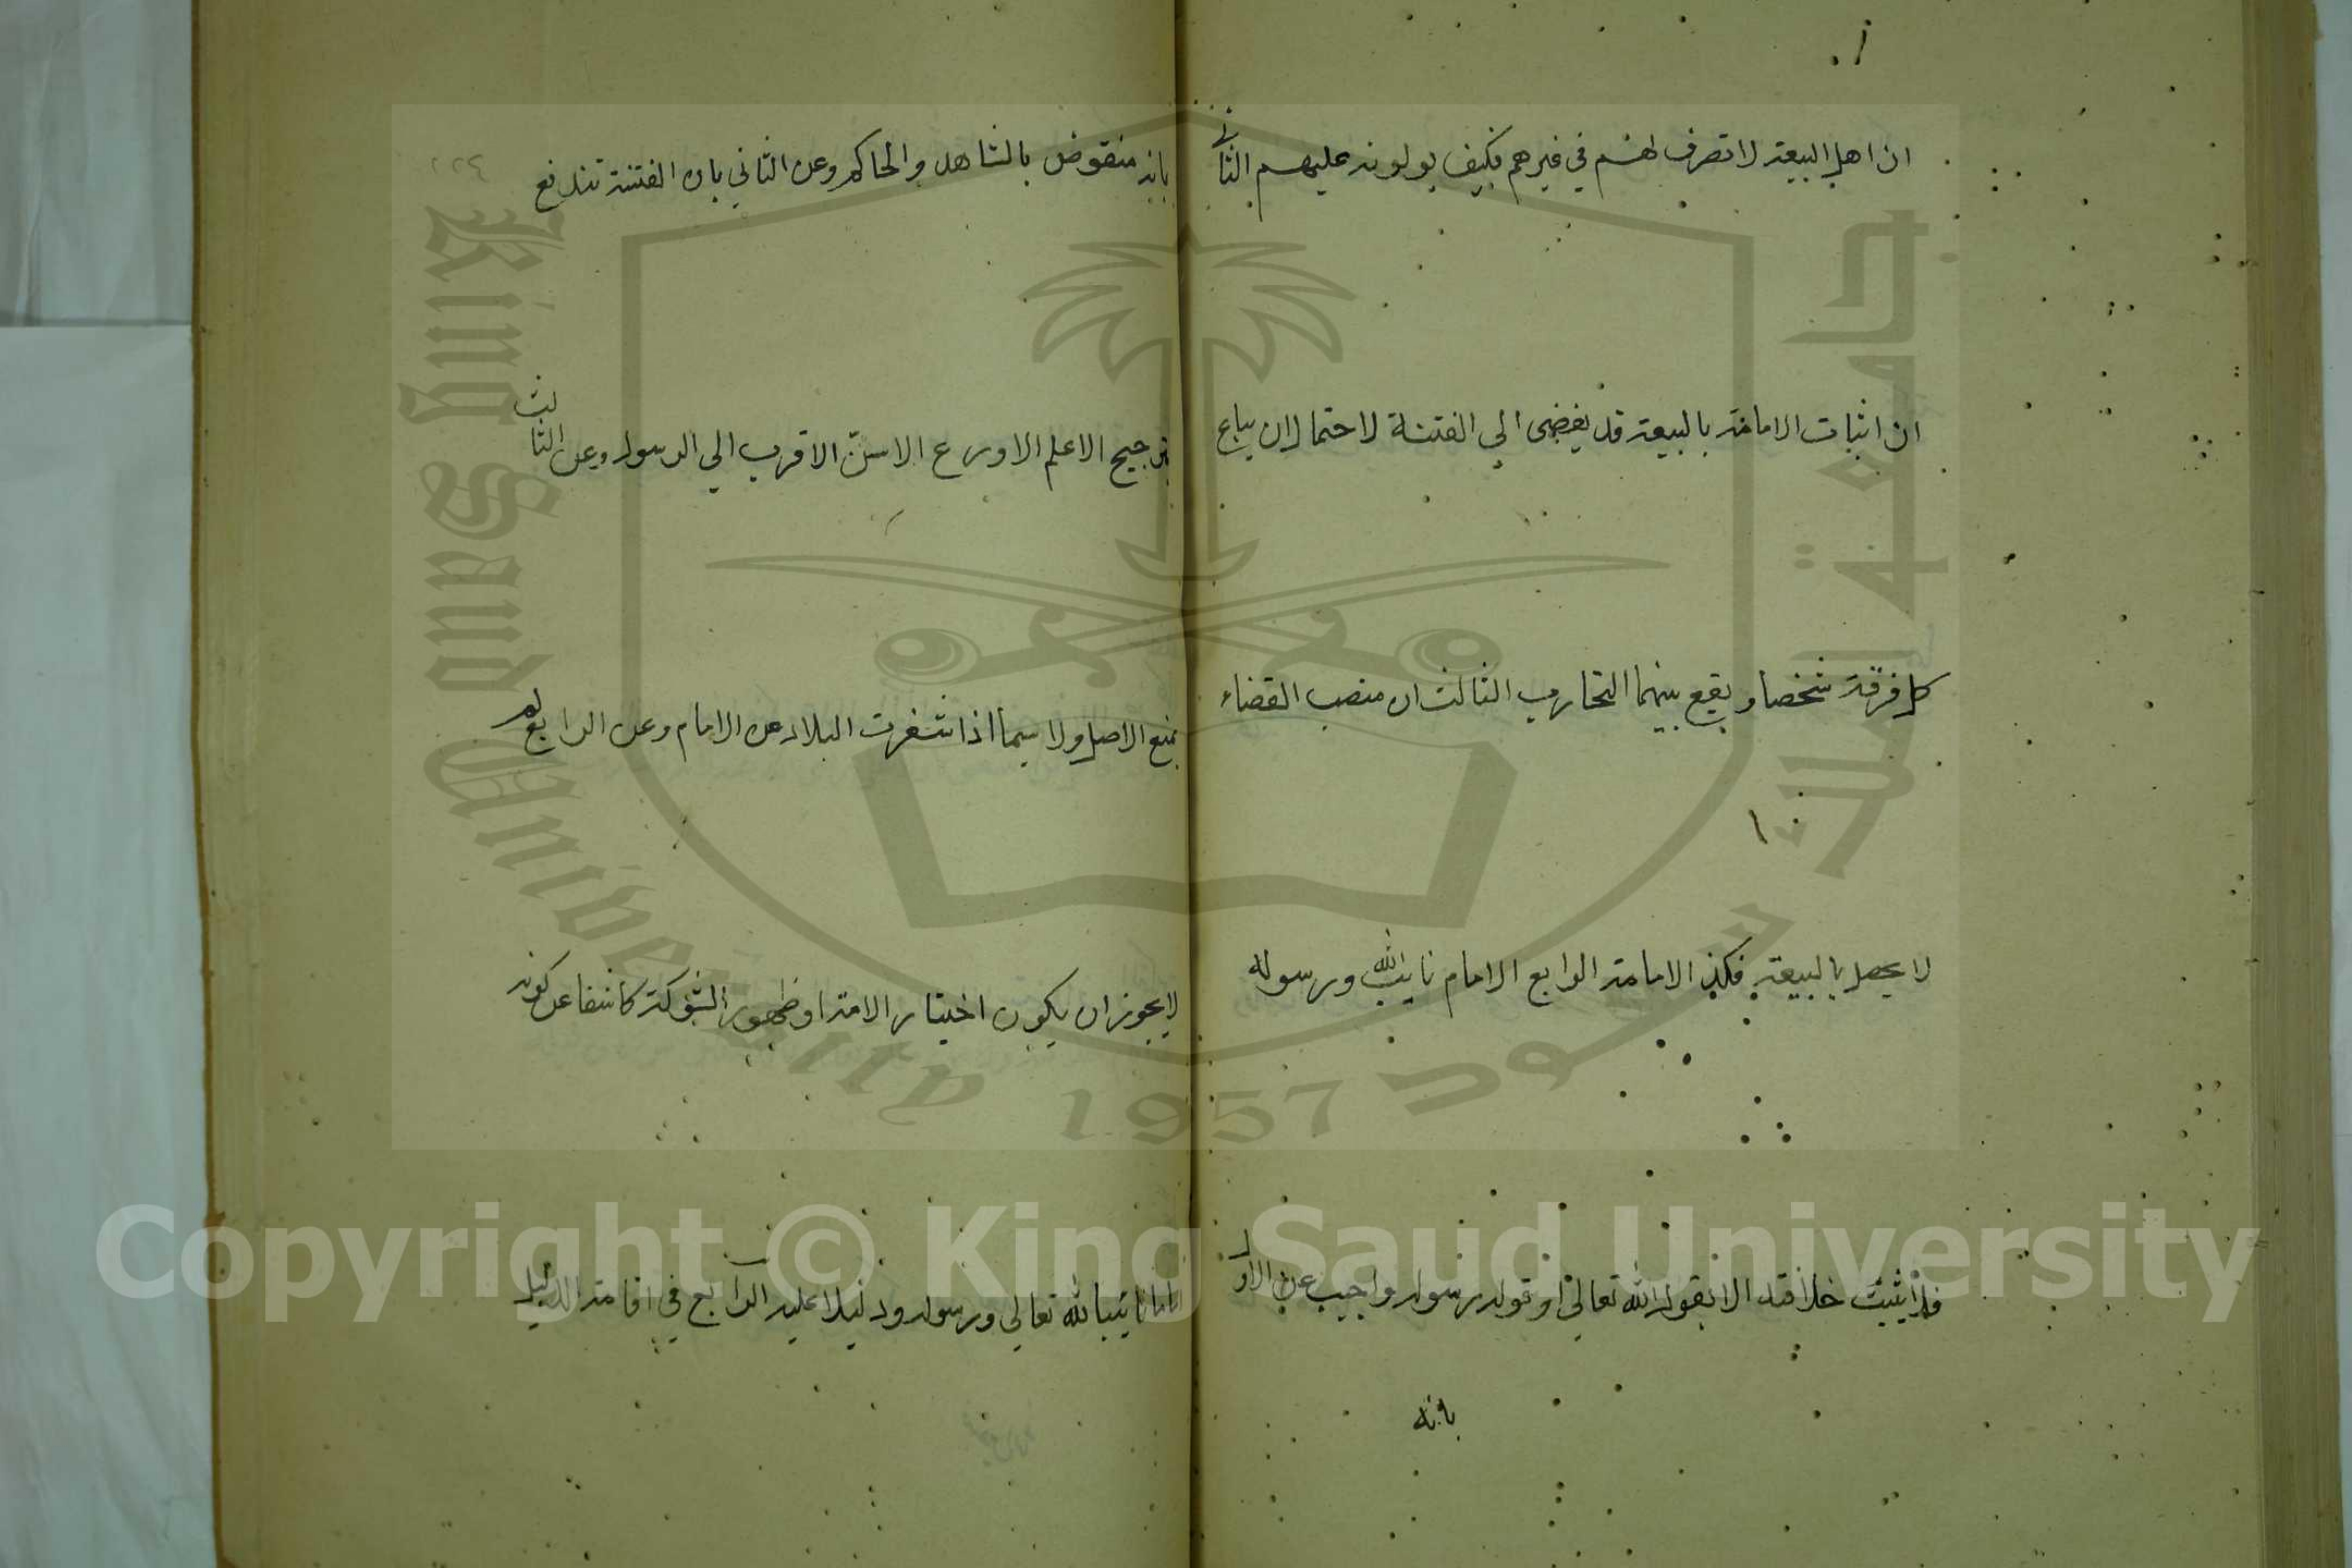 ان اهل البيعة لا تصرف لهم في غيرهم فكيف يولونه عليهم الثاني
ان اثبات الامامة بالبيعة قد يفضي الي الفتنة لاحتمال ان يبايع
كل فرقة شخصا ويقع بينهما التحارب الثالث ان منصب القضاء
لا يحصل بالبيعة فكذا الامامة الرابع الامام نايب الله ورسوله
فلا يثبت خلافته الا بقول الله تعالي او قول رسوله واجيب عن الاول
بانه
بانه منقوض بالشاهد والحاكم وعن الثاني بان الفتنة تندفع
بترجيح الاعلم الاورع الاسنّ الاقرب الي الرسول وعن الثالث
بمنع الاصل ولا سيما اذا شغرت البلاد عن الامام وعن الرابع لم
لا يجوز ان يكون اختيار الامة او ظهور الشوكة كاشفا عن كونه
اماما نايبا لله تعالي ورسوله ودليلا عليه الرابع في اقامة الدليل
٢٢٤
King Saud University
1957
جامعة الملك سعود
Copyright © King Saud University